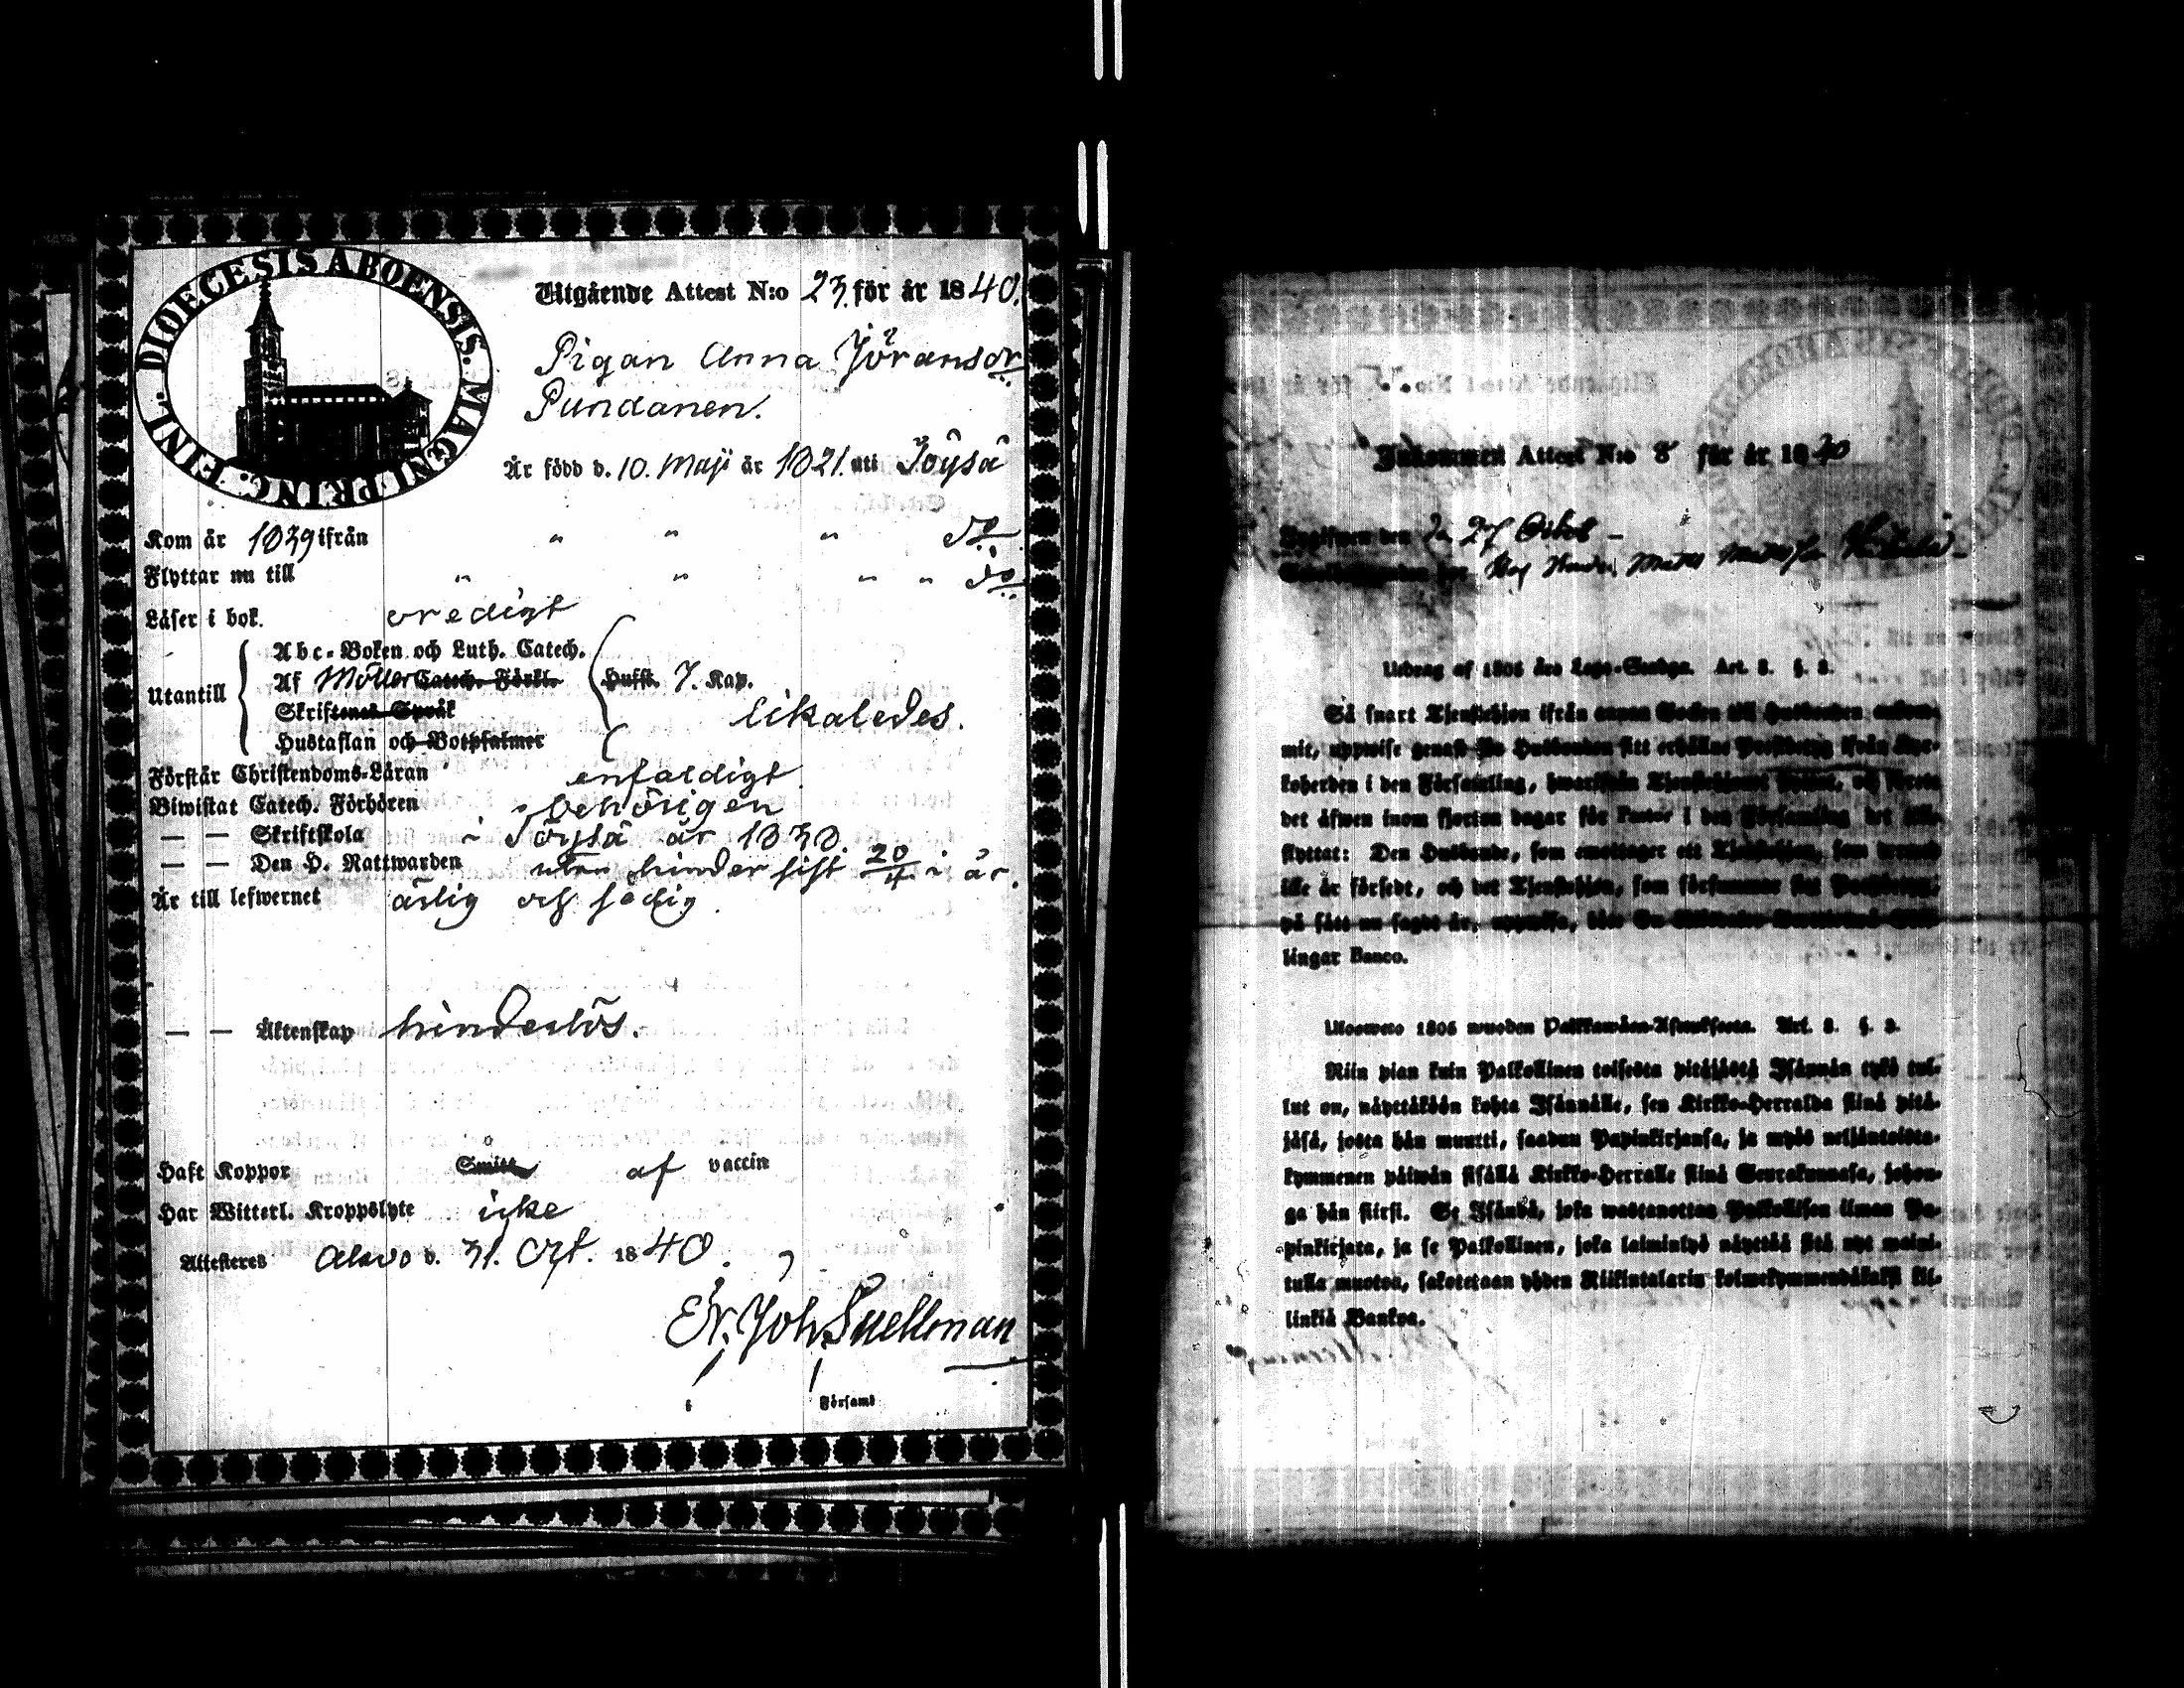 DIOECESIS ABOENSIS. MAGNI PRINC. FINL.
Utgående Attest N:o 23. för år 1840.
Pigan Anna Jöransdr
Pundanen.
Är född d. 10. Maji år 1821. uti Töysä
Kom år 1839 ifrån " " " do
Flyttar nu till " " " " do
Läser i bok. oredigt
Utantill
Abc-Boken och Luth. Catech.
Af Möller Catech. Förkl. Hufst. 7. Kap.
Skriftenes Språk likaledes.
Hustaflan och Botpsalmer
Förstår Christendoms-Läran enfaldigt
Biwistat Catech. Förhören behörigen
— — Skriftskola i Töysä år 1838.
— — Den H. Nattwarden utan hinder sist 20/4 i år.
Är till lefwernet ärlig och sedig.
— — Äktenskap hinderlös.
Haft Koppor Smitt af vaccin
Har Witterl. Kroppslyte icke
Attesteres Alavo d. 31. Oct. 1840.
Er. Joh. Snellman
i Församl
Inkommen Attest N:o 8 för år 1840
den 27 Octob
Utdrag af 1805 års Lego-Stadga. Art. 3. §. 3.
Så snart Tjenstehjon ifrån annan Socken till Husbonden ankom-
mit, uppwise genast för Husbonden sitt erhållne Prestbetyg ifrån Kyr-
koherden i den Församling, hwarifrån Tjenstehjonet och förete
det äfwen inom fjorton dagar för Pastor i den Församling det
flyttat: Den Husbonde, som emottager ett Tjenstehjon, som
icke är försedt, och det Tjenstehjon, som försummar sitt Prestbetyg,
på sätt nu sagdt är, uppwisa, böte En Riksdaler
lingar Banco.
Ulosweto 1805 wuoden Palkkawäen-Asetuksesta. Art. 3. §. 3.
Niin pian kuin Palkollinen toisesta pitäjästä Isännän tykö tul-
lut on, näyttäköön kohta Isännälle, sen Kirkko-Herralda siinä pitä-
jäsä, josta hän muutti, saadun Papinkirjansa, ja myös neljäntoista-
kymmenen päiwän sisällä Kirkko-Herralle siinä Seurakunnasa, johon-
ga hän siirsi. Se Isändä, joka wastanottaa Palkollisen ilman Pa-
pinkirjata, ja se Palkollinen, joka laiminlyö näyttää sitä nyt maini-
tulla muoton, sakotetaan yhden Riikintalarin kolmekymmendäkaksi kil-
linkiä Bankoa.